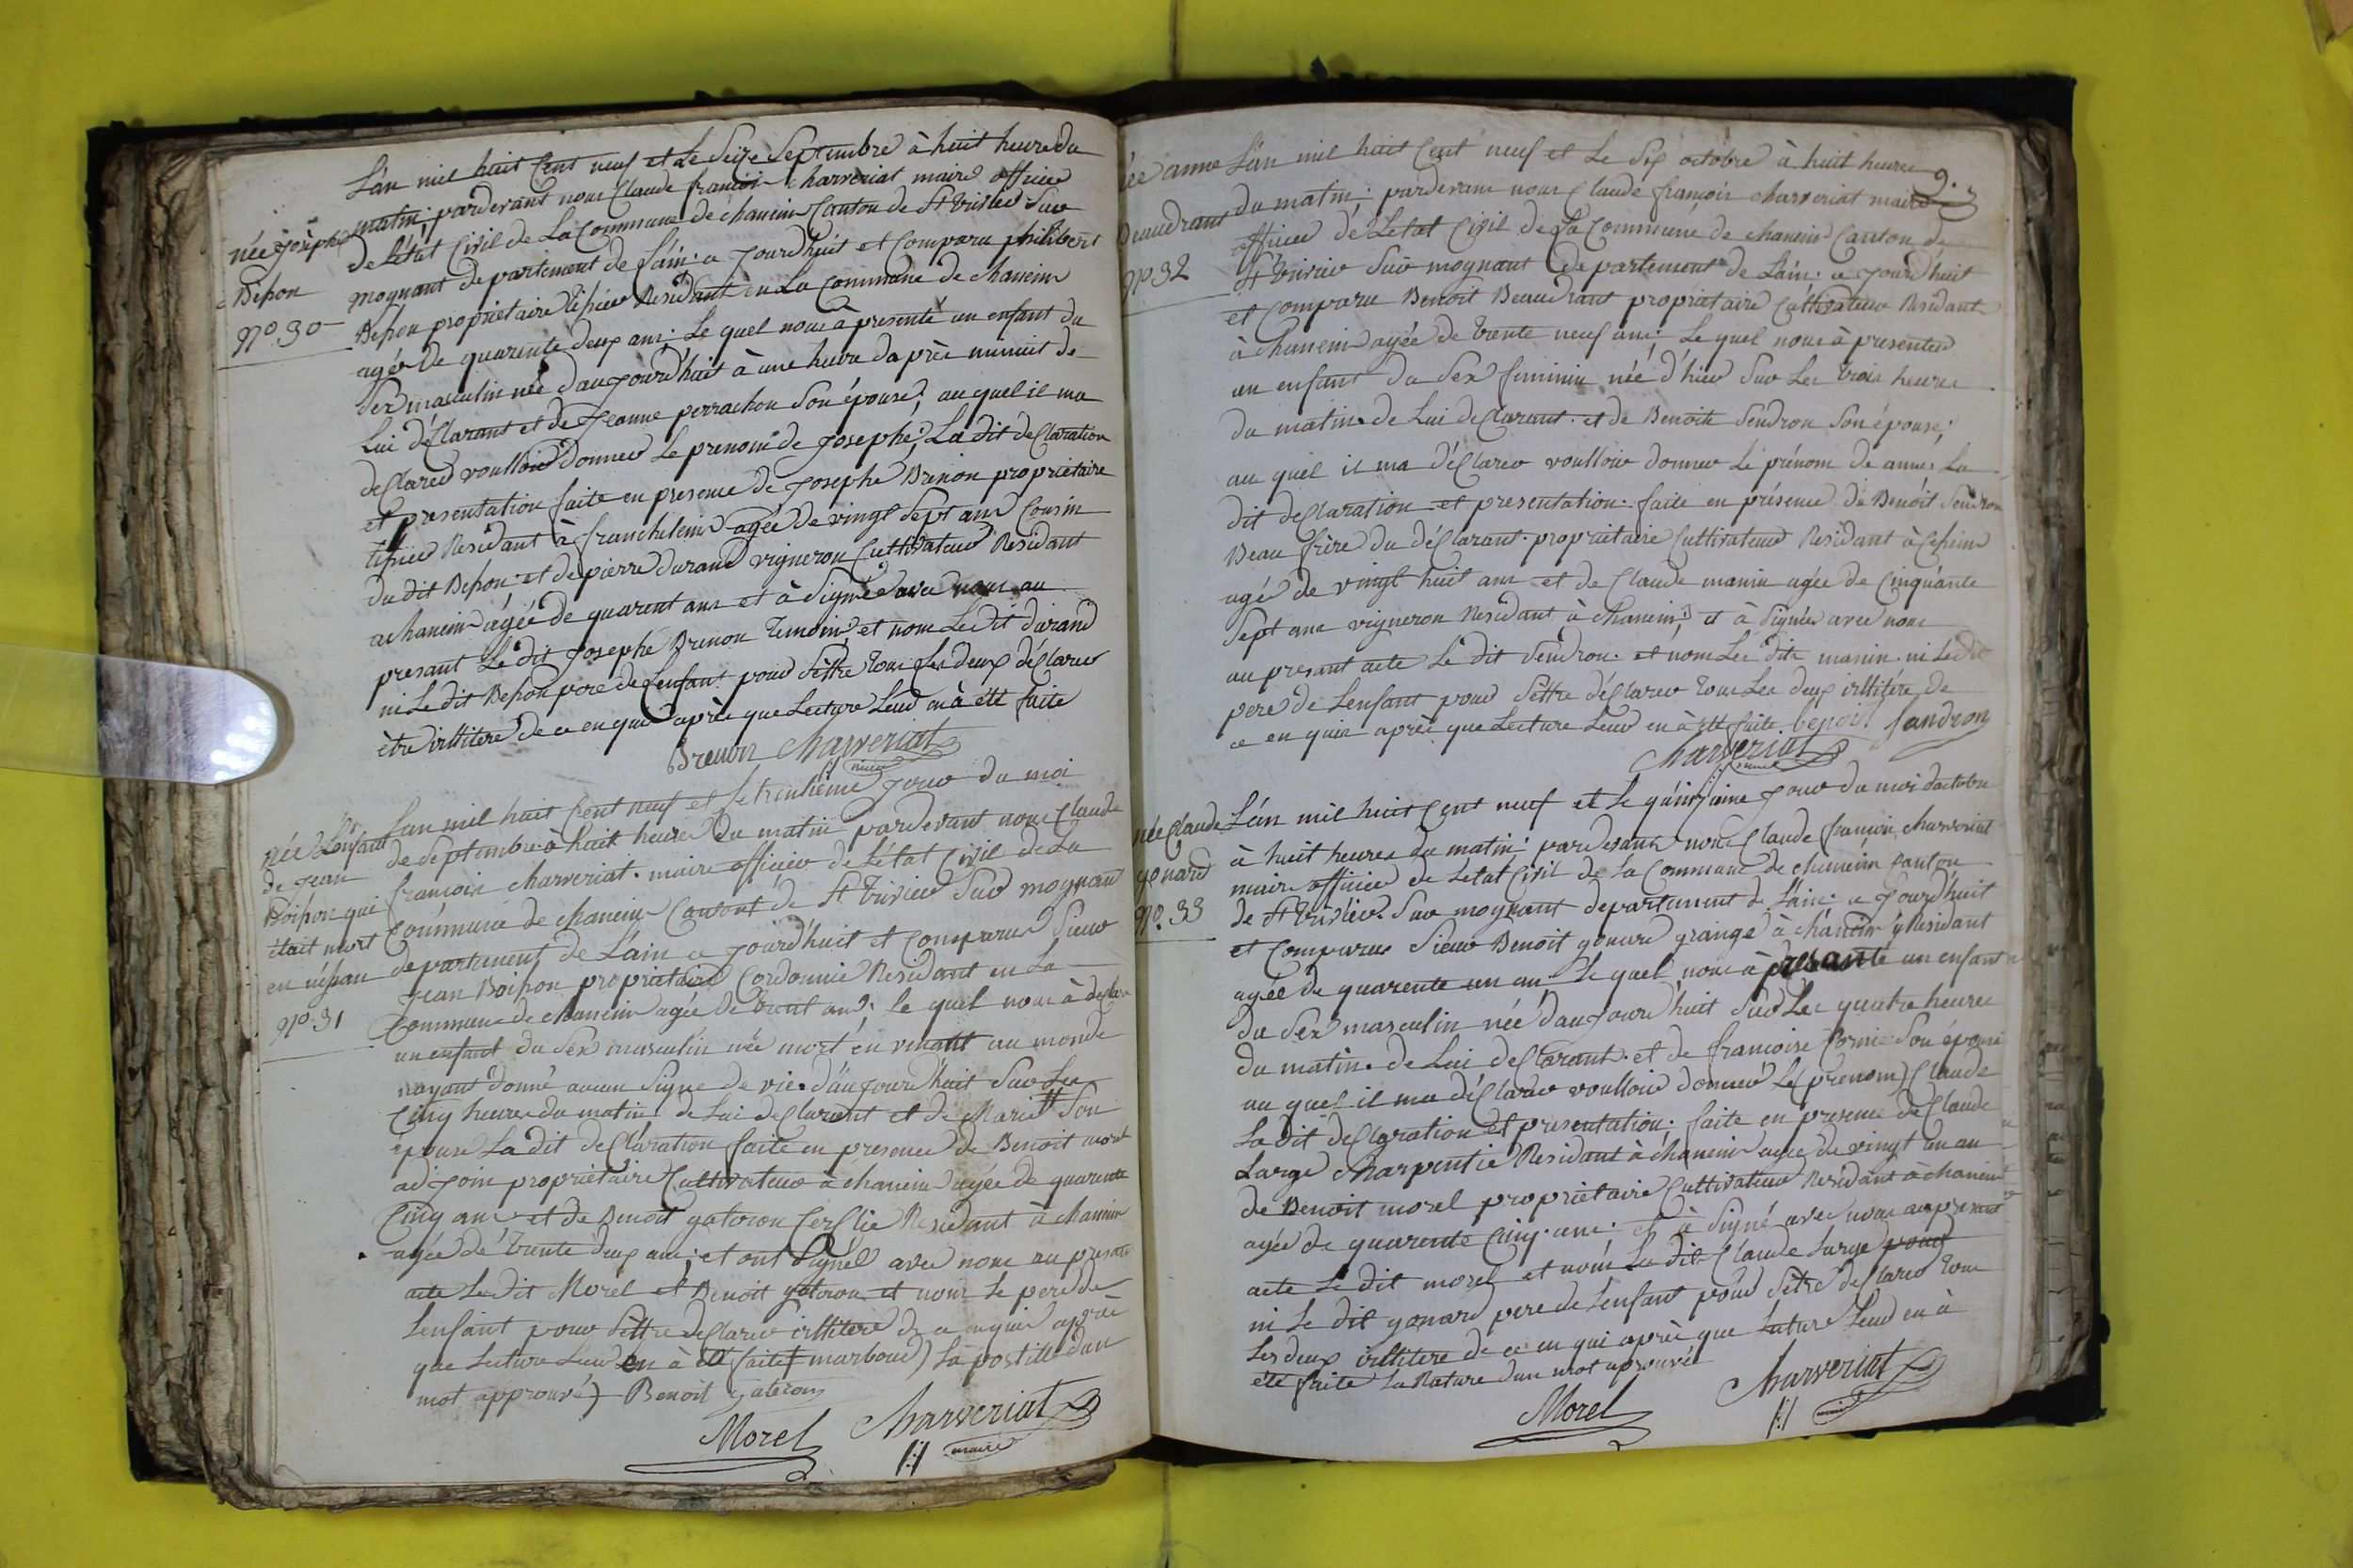 née Josephe
Beßon
N.º 30
L'an mil huit Cent neuf et Le Seize Septembre à huit heure du
matin; pardevant nous Claude françois Charveriat maire officier
de L'état Civil de La Commune de chanein Canton de St trivier Sur
mognant departement de L'ain: a jourd'huit et Comparu philibert
Beßon proprietaire tißier Residant en La Commune de chanein
agée de quarente deux ans: Le quel nous à presenté un enfant du
Sex masculin née d'aujourd'huit à une heure daprès minuit de
Lui déClarant et de Jeanne perrachon Son épouse; au quel il ma
deClareé voulloir donner Le prenom de Josephe; La dit deClaration
et presentation faite en presence de Josephe Brenon proprietaire
tißier Residant à francheleins agée de vingt Sept ans Cousin
du dit Beßon; et de pierre durand vigneron Cultivateur Residant
a chanein agée de quarent ans et à Signée avec nous au
presant Le dit Josephe Brenon temoin et nom Le dit durand
ni Le dit Beßon pere de Lenfant pour Settre tous Les deux déClarer
être irllitere de ce en quis après que Lecture Leur en à été faite
Brenon Charveriat
maire
née L'enfant
de jean
Boißon qui
était mort
en néßan
N.º 31
Lan mil huit Cent neuf et Le trentiéme jour du moi
de Septembre à huit heures du matin pardevant nous Claude
françois charveriat. maire officier de L'état Civil de La
Commune de chanein Canton de St trivier Sur mognant
departement de L'ain a jourd'huit et Comparus Sieur
jean Boißon propriataire Cordonnié Residant en La
Commune de chanein agée de trent ans; Le quel nous à declare
un enfant du Sex masculin née mort en venant au monde
nayant donné aucun Signe de vie. d'aujourd'huit Sur Les
Cinq heures du matin de Lui deClarant et de Marie # Son
epouse La dit deClaration faite en presence de Benoit morel
adjoin proprietaire Cultivateur à chanein agée de quarente
Cinq ans et de Benoit gateron CerClié Residant à chanein
agée de trente deux ans; et ont Signél avec nous au presant
acte Le dit Morel et Benoit gateron et nom Le pere de
Lenfant pour Settre deClarer irllitere de ce en quis après
que Lecture Leur en à été faite # marboud) La postille dun
mot approuvé) Benoit gateron
Morel Charveriat
maire
9.
née anne
Beaudrant
N.º 32
L'an mil huit Cent neuf et Le Six octobre à huit heures
du matin: pardevant nous Claude françois charveriat maire
officier de Létat Civil de La Commune de chanein Canton de
St trivier Sur mognant departement de L'ain: a jourd'huit
et Comparu Benoit Beaudrant propriataire Cultivateur Residant
à chanein agée de trente neuf ans: Le quel nous à presenteé
un enfant du Sex feminin née d'hier Sur Les trois heures
du matin. de Lui deClarant. et de Benoite Sendron Son épouse;
au quel il ma déClarer voulloir donner Le prénom de anne, La
dit deClaration et presentation. faite en présence de Benoit Sendron
Beau frère du déClarant. propriataire Cultivateur Residant à Ceßein
agée de vingt huit ans et de Claude manin agée de Cinquante
Sept ans vigneron Residant à chanein; et à Signée avec nous
au presant acte Le dit Sendron. et nom Les dits manin. ni Le dit
pere de Lenfant pour Settre déClarer tous Les deux irllitére, de
ce en quis après que Lecture Leur en à été faite. benoit sandron
Charveriat
maire
née Claude
gonard
N.º 33
L'an mil huit Cent neuf et Le quinzieme jour du moi doctobre
à huit heures du matin: pardevant nous Claude françois charveriat
maire officier de Létat Civil de La Commune de chanein Canton
de St trivier. Sur mognant departement de L'ain: a jourd'huit
et Comparus Sieur Benoit gonard grangé à chanein y Residant
agée de quarente un an; Le quel nous à presante un enfant
du Sex masculin née d'aujourd'huit Sur Les quatre heures
du matin. de Lui deClarant. et de francoise Cornie Son épouse
au quel il ma déClarer voulloir donneé Le (prenom) Claude
La dit deClaration et presentation; faite en presence de Claude
Large Charpentié Residant à chanein agée de vingt un an
de Benoit morel proprietaire Cultivateur Residant à chanein
agée de quarente Cinq ans; et à Signé avec nous au presant
acte Le dit morel et nom Le dit Claude Large pour
ni Le dit gonard pere de Lenfant pour Sêtre deClarer tous
Les deux irllitere de ce en qui après que Lature Leur en à
été faite La Rature dun mot aprouvée
Morel Charveriat
maire